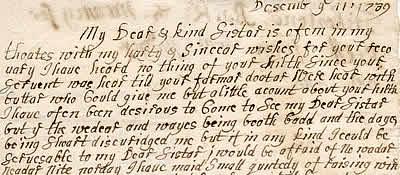 Desembr ye 11: 1739
My Dear & kind Sistar is ofern in my
thoates with my harty & Sinceat wishes for your reco
vary I have heard no thing of your hilth Since your
Servent was hear till your formar doctor Stick hear with
buttar who Could give me but alitle acount about your hilth
I have ofern been desirous to Come to See my Dear Sistar
but if the wedear and wayes being booth badd and the dayes
being Shoart discuridged me but if in any kind I could be
Servesable to my Dear Sistar I would be afraid of no roads
neadar nite nor day I have maid Small quntedy of raising win